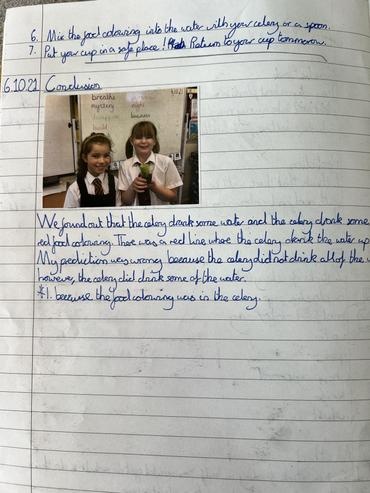 6. Mix the food colouring into the water with your celery or a spoon.
7. Put your cup in a safe place! Return to your cup tommorow.
6.10.21 Conclusion
breathe
mystery
night
build
business
We found out that the celery drank some water and the celery drank some
red food colouring. There was a red line where the celery drank the water up
My prediction was wrong because the celery did not drink all of the
however, the celery did drink some of the water.
*1. because the food colouring was in the celery.